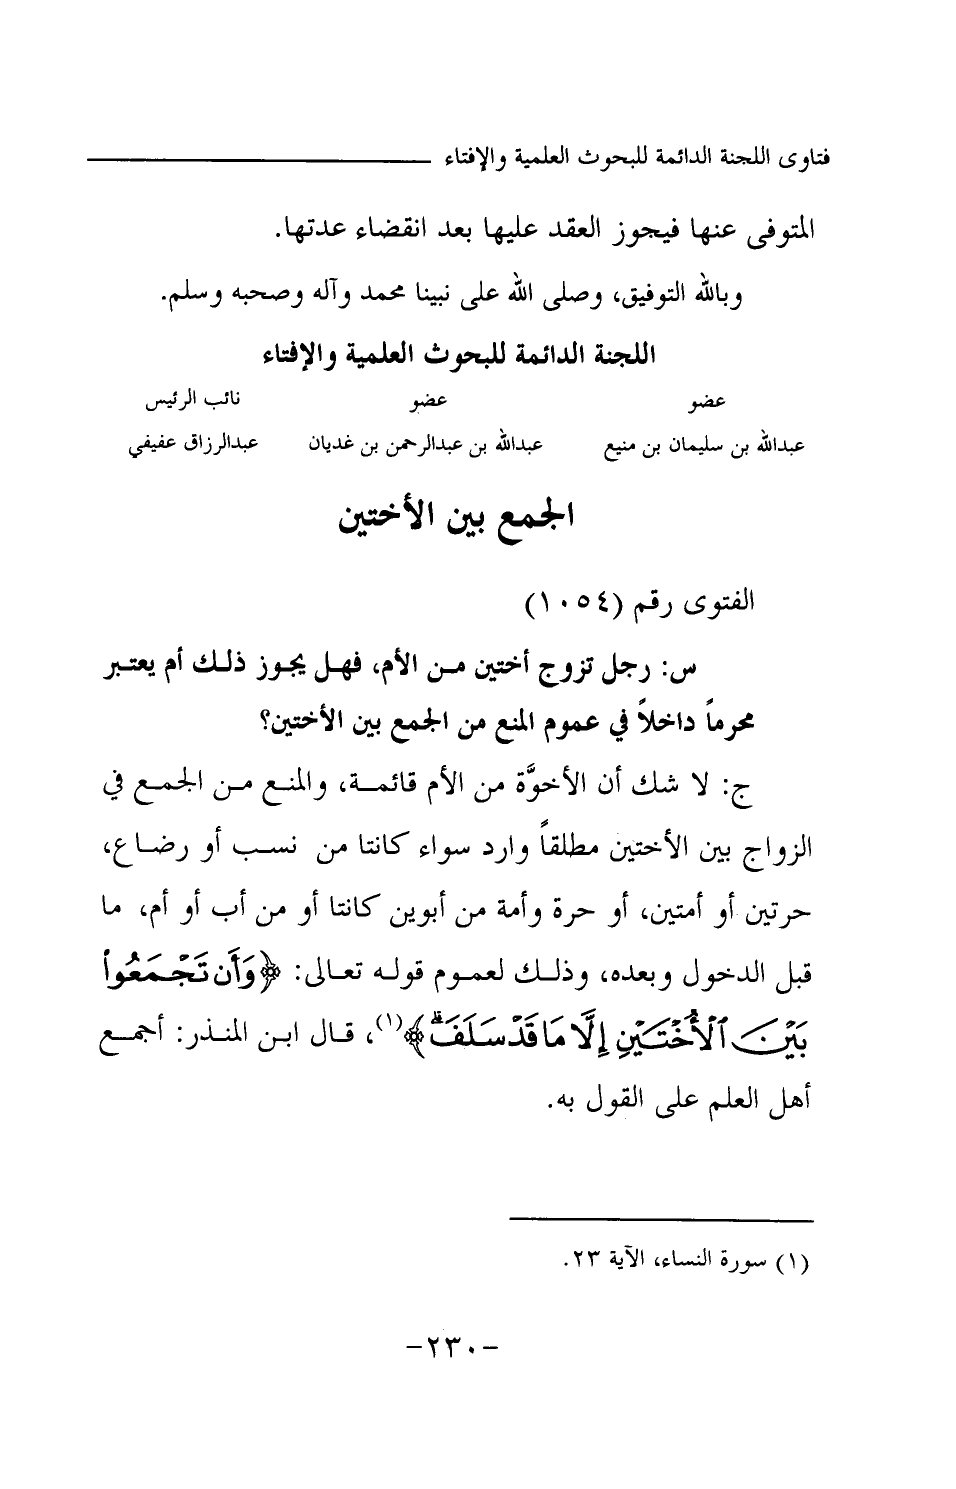 فتاوى اللجنة الدائمة للبحوث العلمية والإفتاء
المتوفى عنها فيجوز العقد عليها بعد انقضاء عدتها.
وبالله التوفيق، وصلى الله على نبينا محمد وآله وصحبه وسلم.
اللجنة الدائمة للبحوث العلمية والإفتاء
عضو عضو نائب الرئيس
عبدالله بن سليمان بن منيع عبدالله بن عبدالرحمن بن غديان عبدالرزاق عفيفي
الجمع بين الأختين
الفتوى رقم (١٠٥٤)
س: رجل تزوج أختين من الأم، فهل يجوز ذلك أم يعتبر
محرماً داخلاً في عموم المنع من الجمع بين الأختين؟
ج: لا شك أن الأخوَّة من الأم قائمة، والمنع من الجمع في
الزواج بين الأختين مطلقاً وارد سواء كانتا من نسب أو رضاع،
حرتين أو أمتين، أو حرة وأمة من أبوين كانتا أو من أب أو أم، ما
قبل الدخول وبعده، وذلك لعموم قوله تعالى: ﴿وَأَن تَجْمَعُوا۟
بَيْنَ ٱلْأُخْتَيْنِ إِلَّا مَا قَدْ سَلَفَ ۗ﴾(١)، قال ابن المنذر: أجمع
أهل العلم على القول به.
(١) سورة النساء، الآية ٢٣.
-٢٣٠-